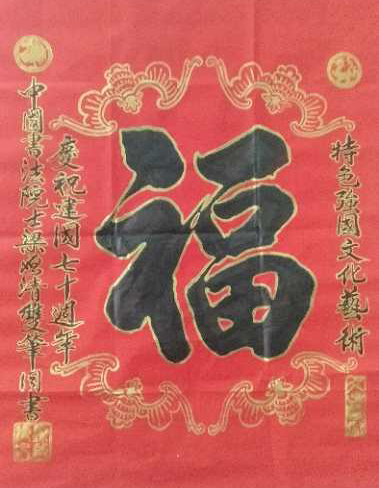 特色強國文化藝術
福
慶祝建國七十週年
中國書法院士梁如清雙筆同書